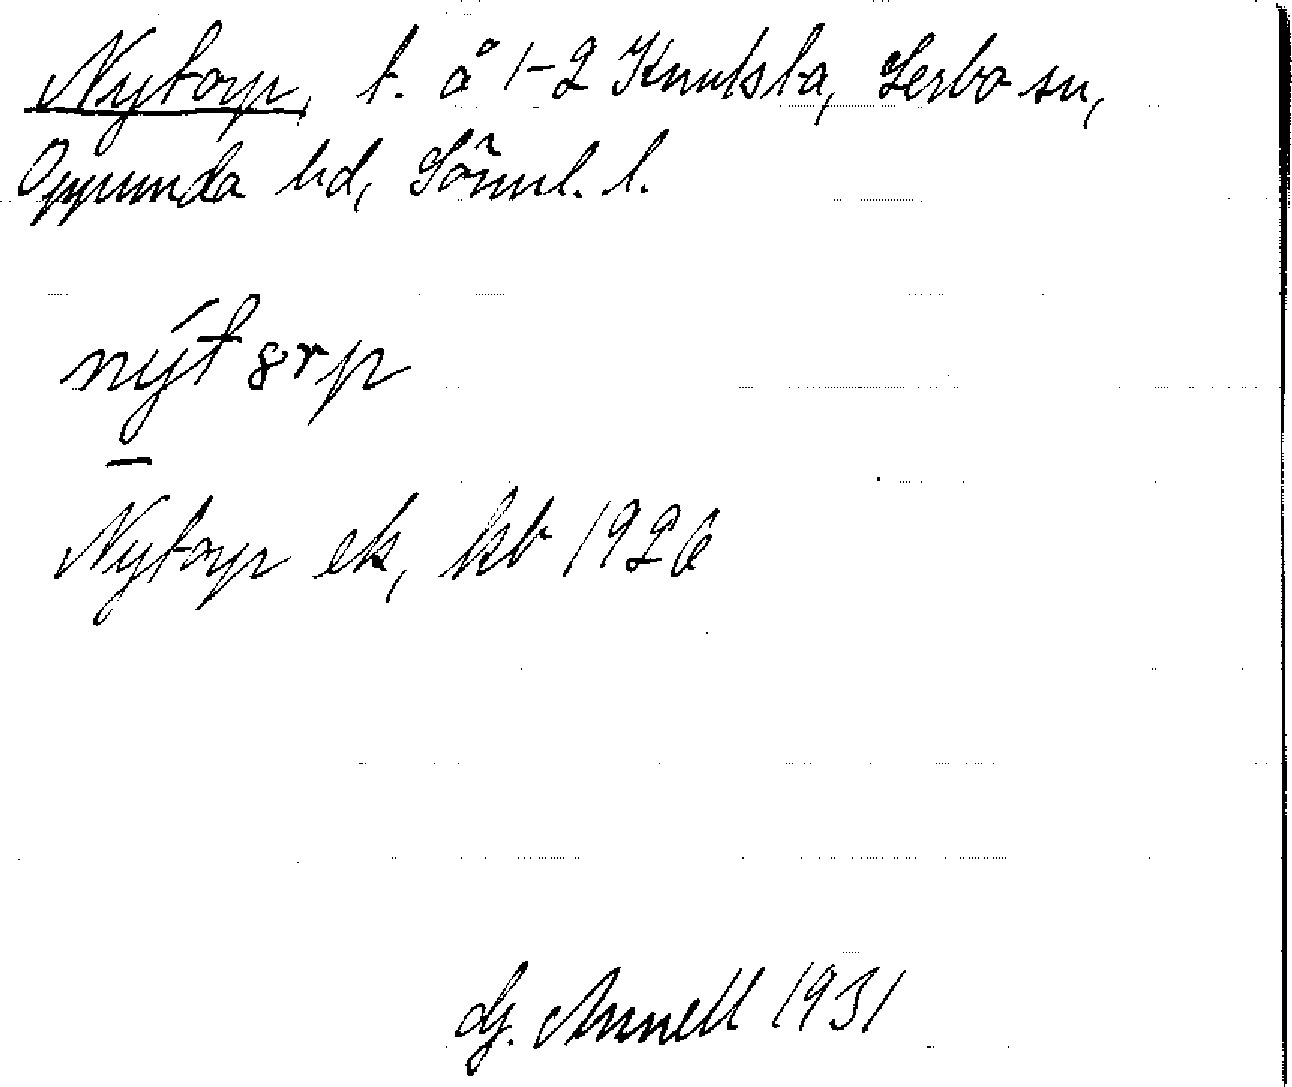 Nytorp, t. å 1-2 Knutsta, Lerbo sn,
Oppunda hd, Söml. l.
nýtȣrp
Nytorp ek, kb 1926
G. Annell 1931